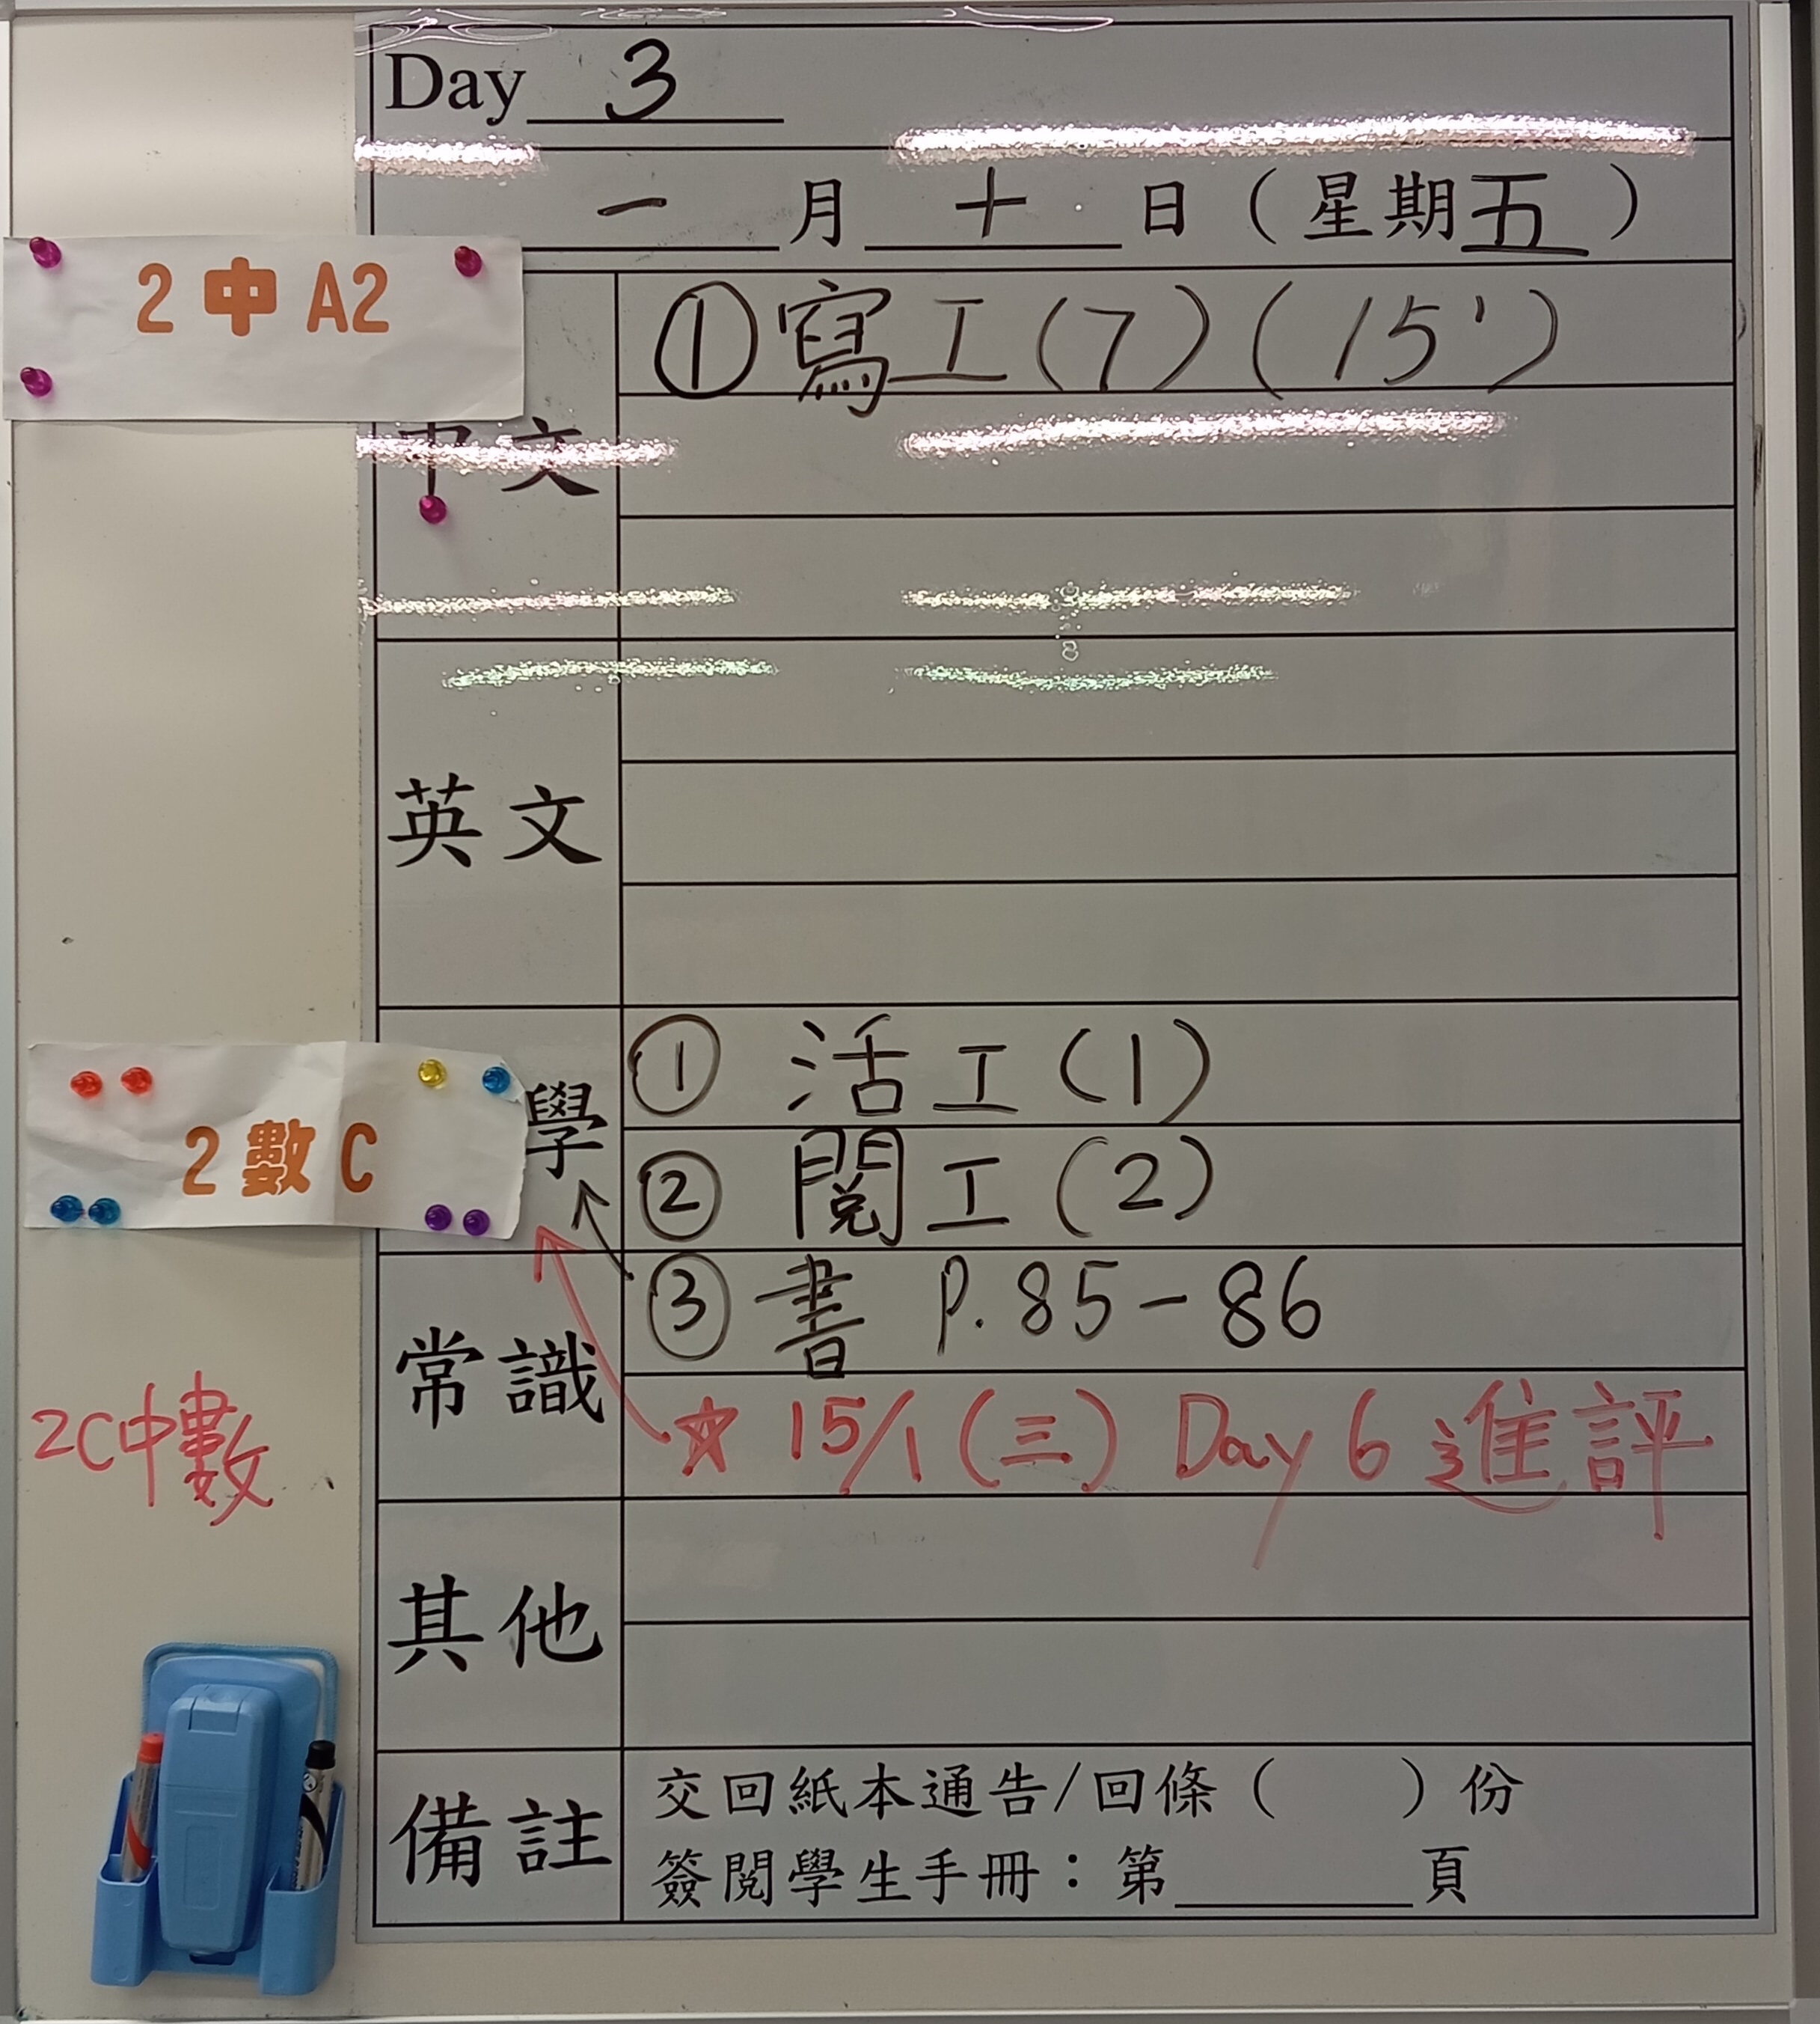 Day 3
一月十日(星期五)
2 中 A2
中文
①寫工(7)(15')
英文
2 數 C
學
① 活工(1)
② 閱工(2)
③ 書 P.85-86
常識
☆ 15/1(三) Day 6 進評
2C中數
其他
備註
交回紙本通告/回條( )份
簽閱學生手冊：第______頁